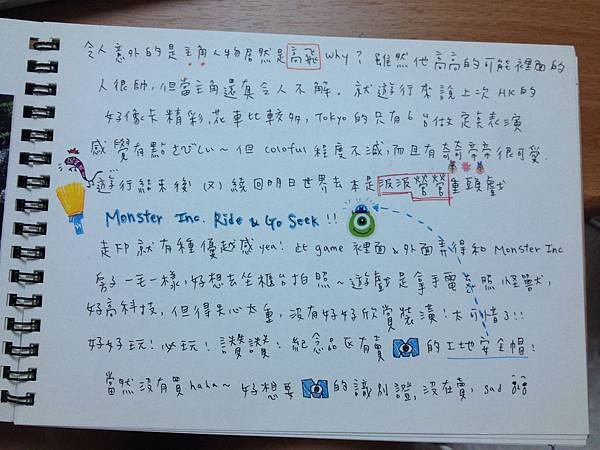 令人意外的是主角人物居然是高飛 why? 雖然他高高的可能裡面的
人很帥,但當主角還真令人不解。就遊行來說上次HK的
好像卡精彩,花車比較多,Tokyo的只有6台做定裝表演
感覺有點さびしい~但colorful程度不減,而且有奇奇帝帝很可愛.
遊行結束後(又)繞回明日世界去本是波波營營重頭戲
Monster Inc. Ride & Go Seek!!
走FP就有種優越感yea! 此game裡面&外面弄得和Monster Inc
房子一毛一樣,好想去坐櫃台拍照~遊戲是拿手電表照怪獸,
好高科技,但得失心太重,沒有好好欣賞裝潢!太可惜了!!
好好玩!必玩!讚讚!紀念品區有賣的工地安全帽!
當然沒有買haha~好想要的識別證,沒在賣,sad